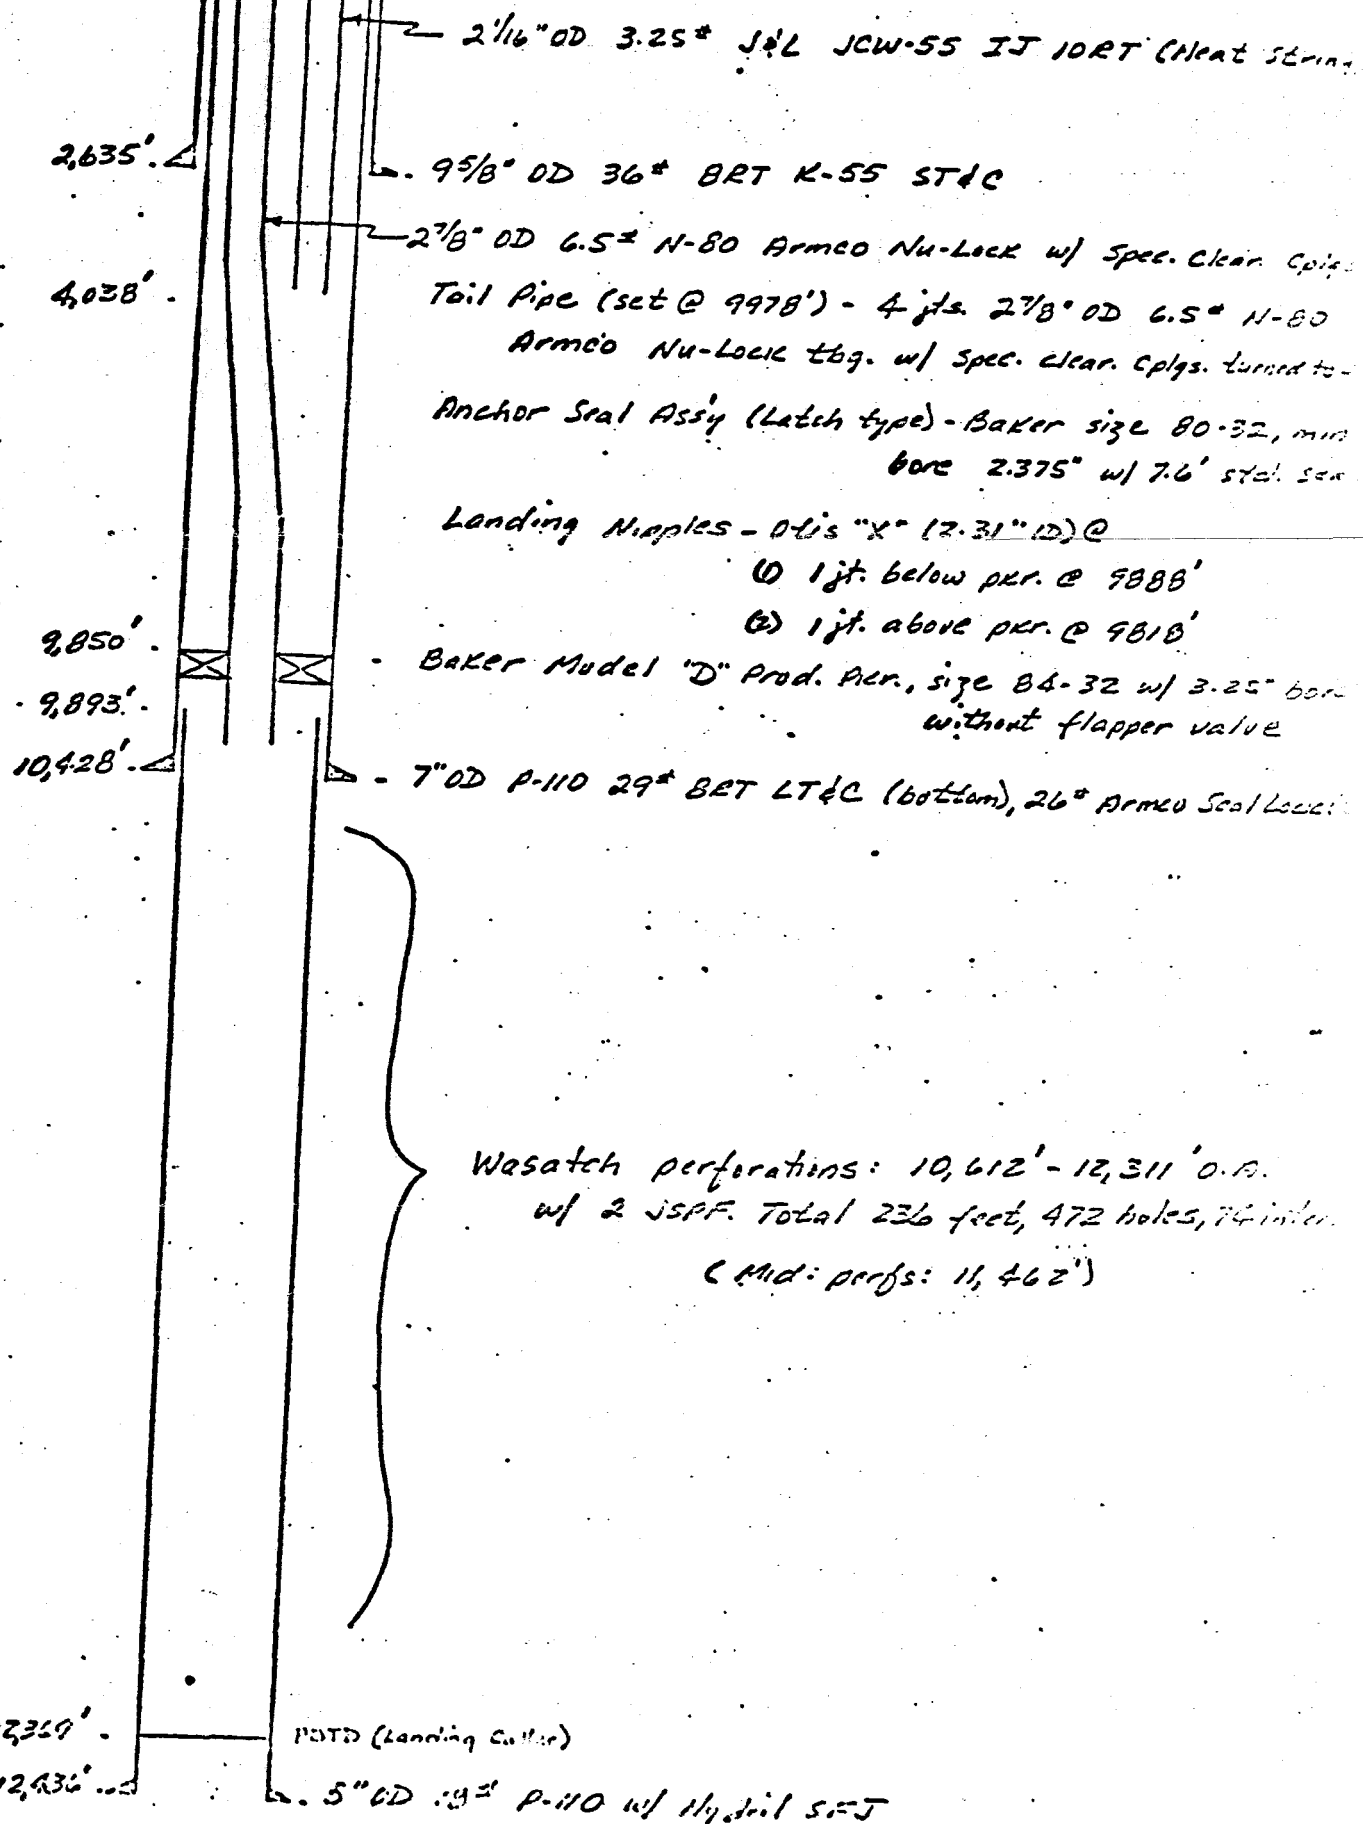 2 1/16" OD 3.25# J&L JCW-55 IJ 10RT (Heat
2,635'
9 5/8" OD 36# 8RT K-55 ST&C
2 7/8" OD 6.5# N-80 Armco Nu-Lock w/ Spec. Clear.
4,038'
Tail Pipe (set @ 9978') - 4 jts. 2 7/8" OD 6.5# N-80
Armco Nu-Lock tbg. w/ Spec. Clear. Cplgs. turned to
Anchor Seal Ass'y (Latch type) - Baker size 80-32, min
bore 2.375" w/ 7.6'
Landing Nipples - Otis "X" (2.31" ID) @
(1) 1 jt. below pkr. @ 9888'
(2) 1 jt. above pkr. @ 9818'
9,850'
Baker Model "D" Prod. Pkr., size 84-32 w/ 3.25" bore
without flapper valve
9,893'
10,428'
7" OD P-110 29# 8RT LT&C (bottom), 26# Armco Seal
Wasatch perforations: 10,612' - 12,311' O.A.
w/ 2 JSPF. Total 236 feet, 472 holes,
(Mid: perfs: 11,462')
PBTD (Landing Collar)
5" OD P-110 w/ Hydril SFJ